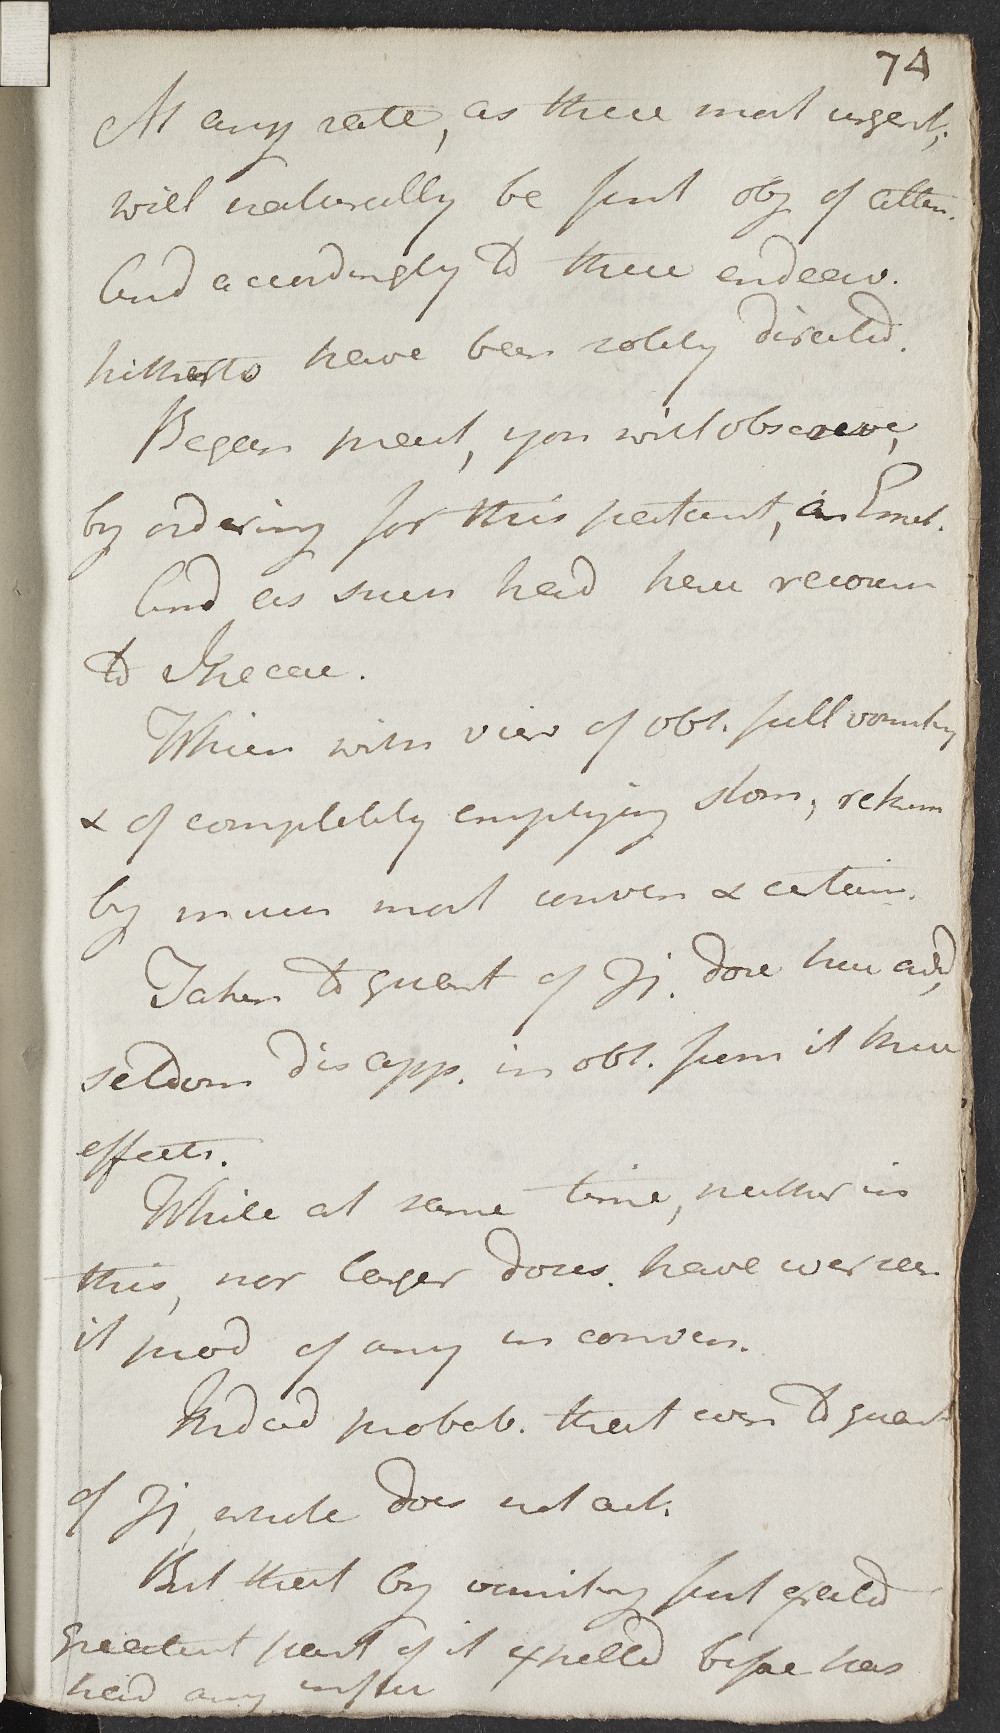 74
At any rate, as these most urgent,
will naturally be first obj of atten.
And accordingly to these endeav.
hitherto have been solely directed.
Began pract, you will observe,
by ordering for this patient, an Emet.
And as such had here recours
to Ipecac.
Which with view of obt. full vomiting
& of completely emptying stom,
by much most conven & certain.
Taken to quant of Zj. dose here advd,
seldom disapp. in obt. from it these
effects.
While at same time, neither in
this, nor larger doses. have we seen
it prod of any inconven.
Indeed probab. that even to quant
of Zj, whole does not act.
But that by vomiting first excited
greatest part of it expelled before has
had any influ